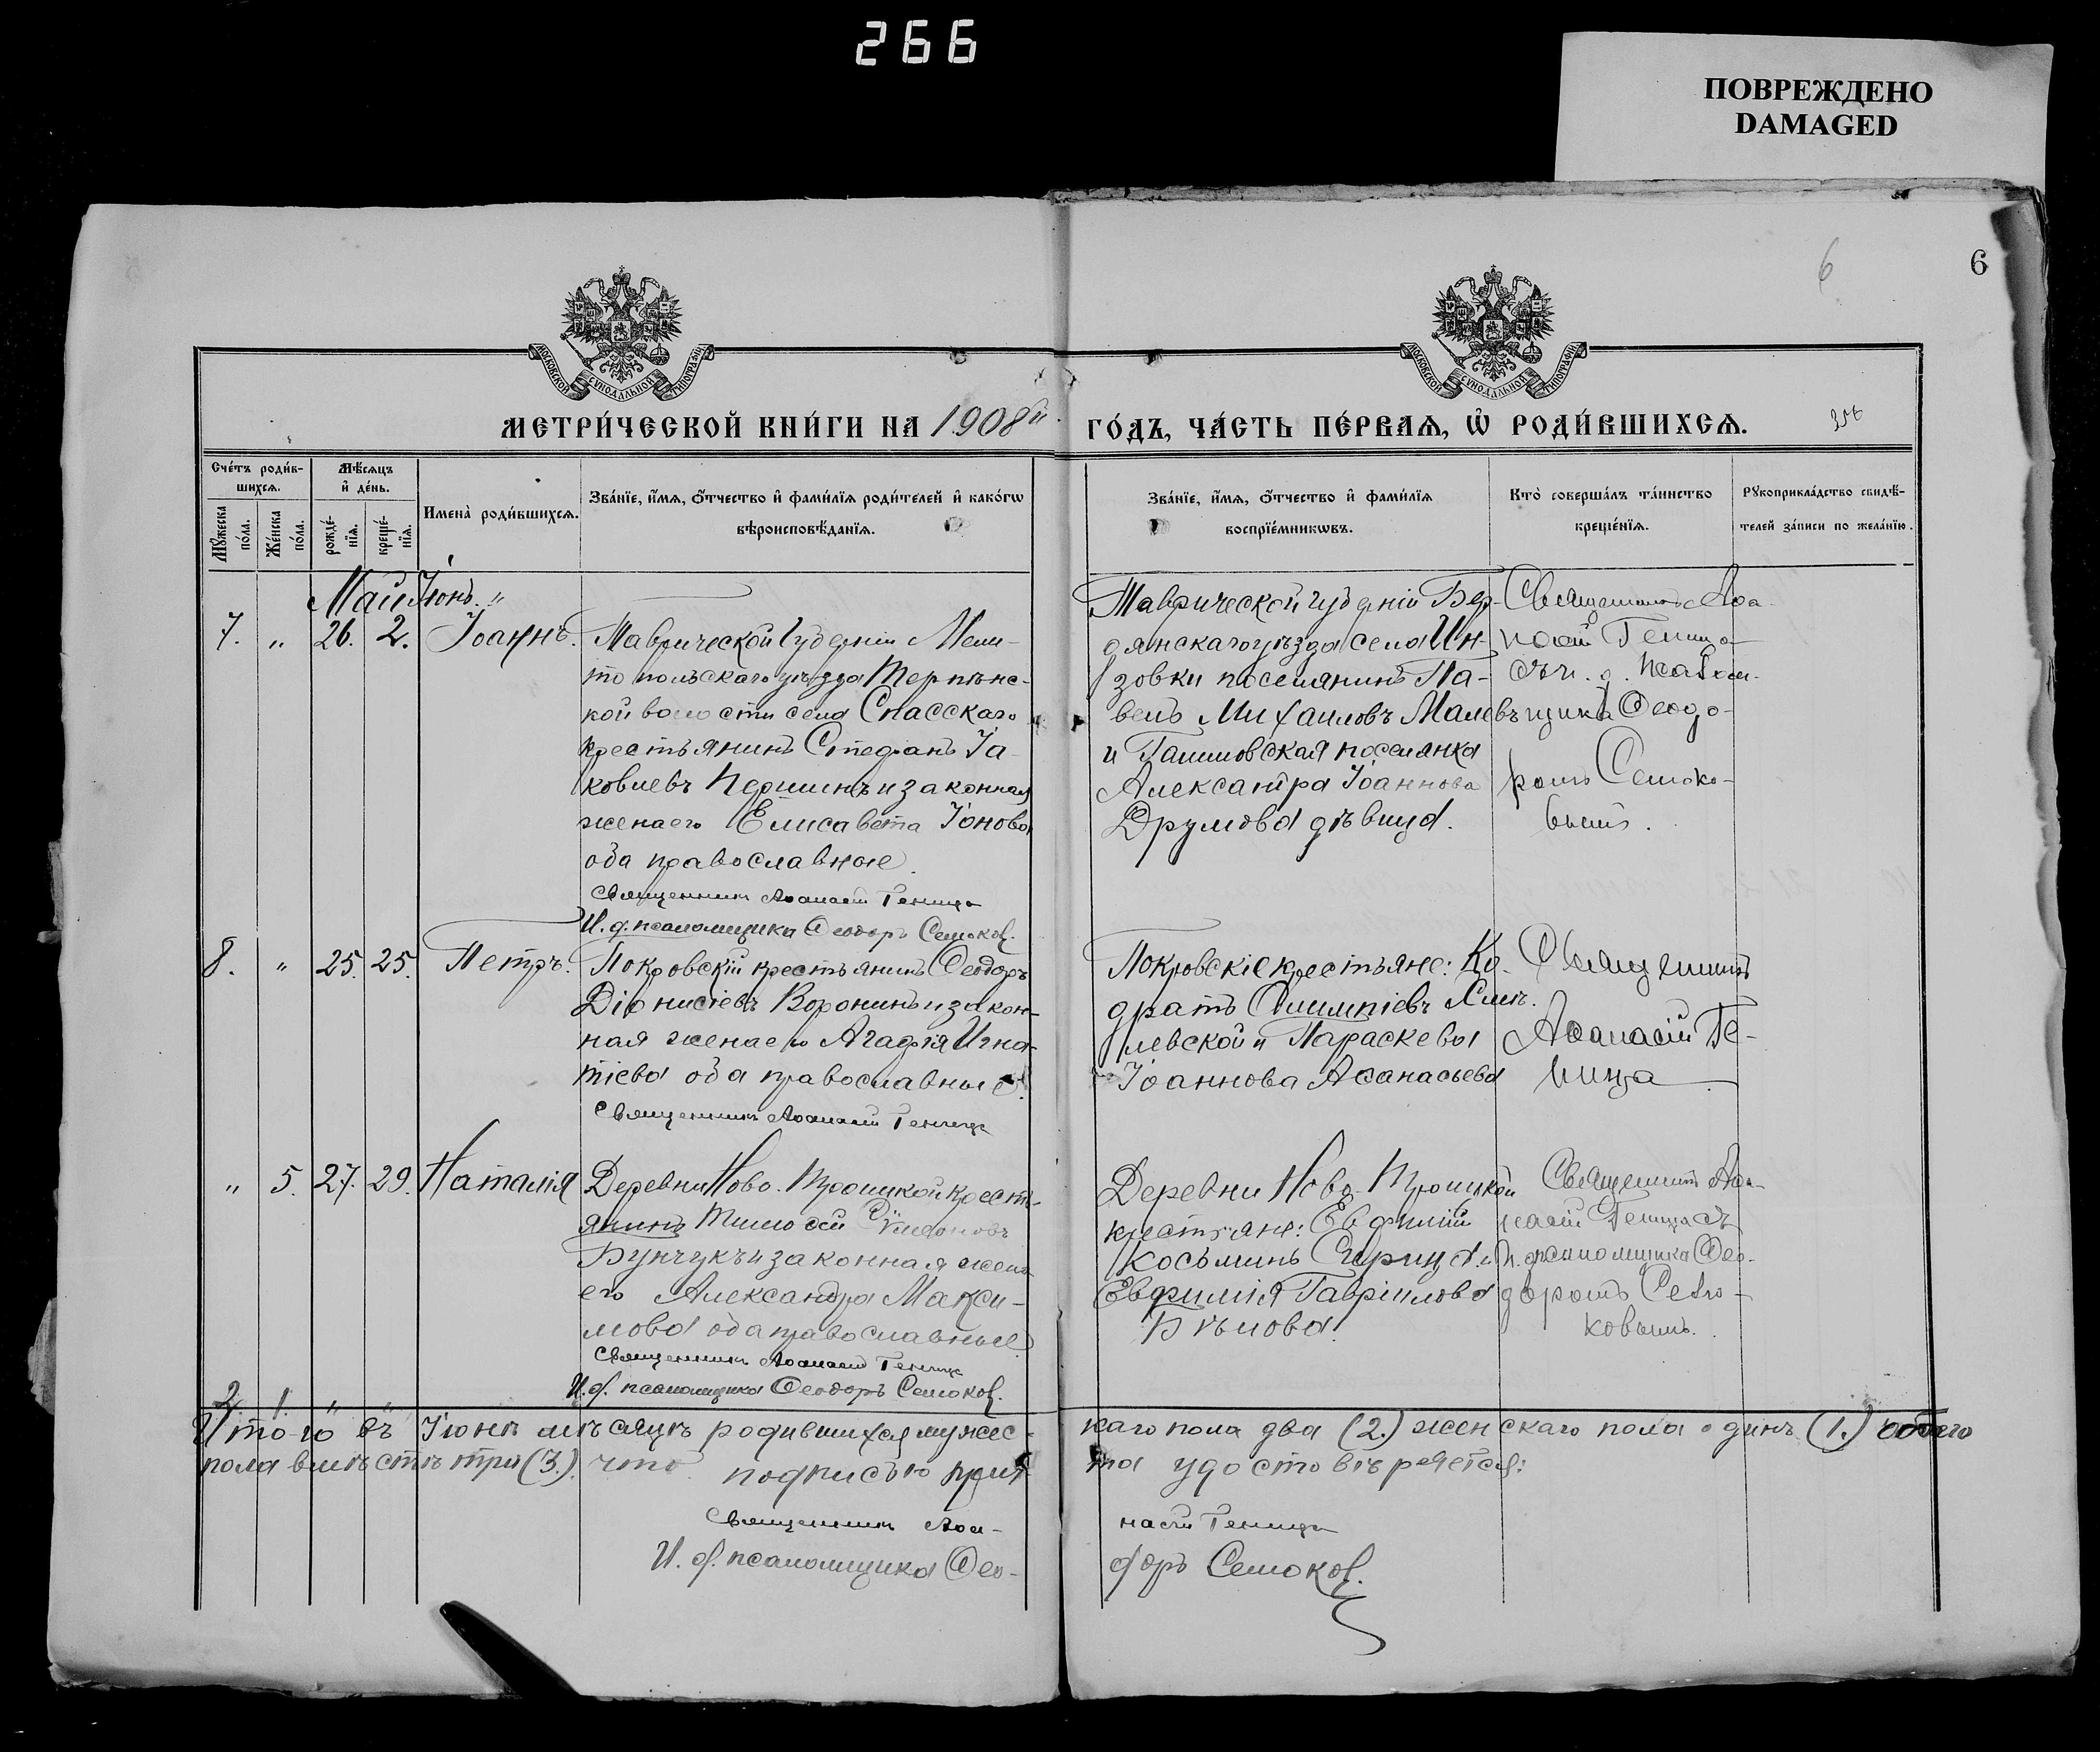 266
ПОВРЕЖДЕНО
DAMAGED
6
6
МОСКОВСКОЙ СѴНОДАЛЬНОЙ ТИПОГРАФІИ
МОСКОВСКОЙ СѴНОДАЛЬНОЙ ТИПОГРАФІИ
МЕТРИ́ЧЕСКОЙ КНИ́ГИ НА 1908й
ГО́ДЪ, ЧА́СТЬ ПЕ́РВАѦ, Ѽ РОДИ́ВШИХСѦ.
Сче́тъ роди́в-
шихсѧ.
Мѣ́сѧцъ
и҆ де́нь.
Мꙋ́жеска по́ла.
Же́нска по́ла.
рожде́-
нїѧ.
креще́-
нїѧ.
Имена̀ роди́вшихсѧ.
Зва́нїе, и҆́мѧ, ѻ҆́тчество и҆ фами́лїѧ роди́телей и҆ како́гѡ
вѣроисповѣ́данїѧ.
Зва́нїе, и҆́мѧ, ѻ҆́тчество и҆ фами́лїѧ
воспрїе́мникѡвъ.
Кто̀ соверша́лъ та́инство
креще́нїѧ.
Рꙋкоприкла́дство свидѣ́-
телей за́писи по жела́нїю.
Май Іюнь "
7. " 26. 2. Іоаннъ.
Таврической губерніи Мели-
топольскаго уѣзда Терпѣнс-
кой волости села Спасскаго
крестьянинъ Стефанъ Іа-
ковлевъ Першинъ и законная
жена его Елисавета Іонова
оба православные.
Священникъ Аѳанасій Геница
И. д. псаломщика Ѳеодоръ Семоков.
Таврической губерніи Бер-
дянскаго уѣзда села Ин-
зовки поселянинъ Па-
велъ Михаиловъ Малевъ
и поселянка
Александра Іоаннова
Друмова дѣвица.
Священникъ Аѳа-
насій Геница
съ и. д. псалом-
щика Ѳеодо-
ромъ Семоко-
вымъ.
8. " 25. 25. Петръ.
Покровскій крестьянинъ Ѳеодоръ
Діонисіевъ Воронинъ и закон-
ная жена его Агафія Игна-
тіева оба православные.
Священникъ Аѳанасій Геница
Покровскіе крестьяне: Ко-
дратъ Олимпіевъ
левской и Параскева
Іоаннова Аѳанасьева
Священникъ
Аѳанасій Ге-
ница
" 5. 27. 29. Наталія
Деревни Ново-Троицкой крест-
янинъ Тимоѳей Сѵмеоновъ
Бунчукъ и законная жена
его Александра Макси-
мова оба православные.
Священникъ Аѳанасій Геница
И. д. псаломщика Ѳеодоръ Семоков.
Деревни Ново-Троицкой
крестьяне: Евфимій
Косьминъ и
Евфимія Гавріилова
Бѣлова.
Священникъ Аѳа-
насій Геница съ
и. д. псаломщика Ѳео-
доромъ Семо-
ковымъ.
2. 1. " "
Итого въ Іюнѣ мѣсяцѣ родившихся мужес-
каго пола два (2.) женскаго пола одинъ (1.) обоего
пола вмѣстѣ три (3.). что подписью прич-
та удостовѣряется:
Священникъ Аѳа-
насій Геница
И. д. псаломщика Ѳео-
доръ Семоков.